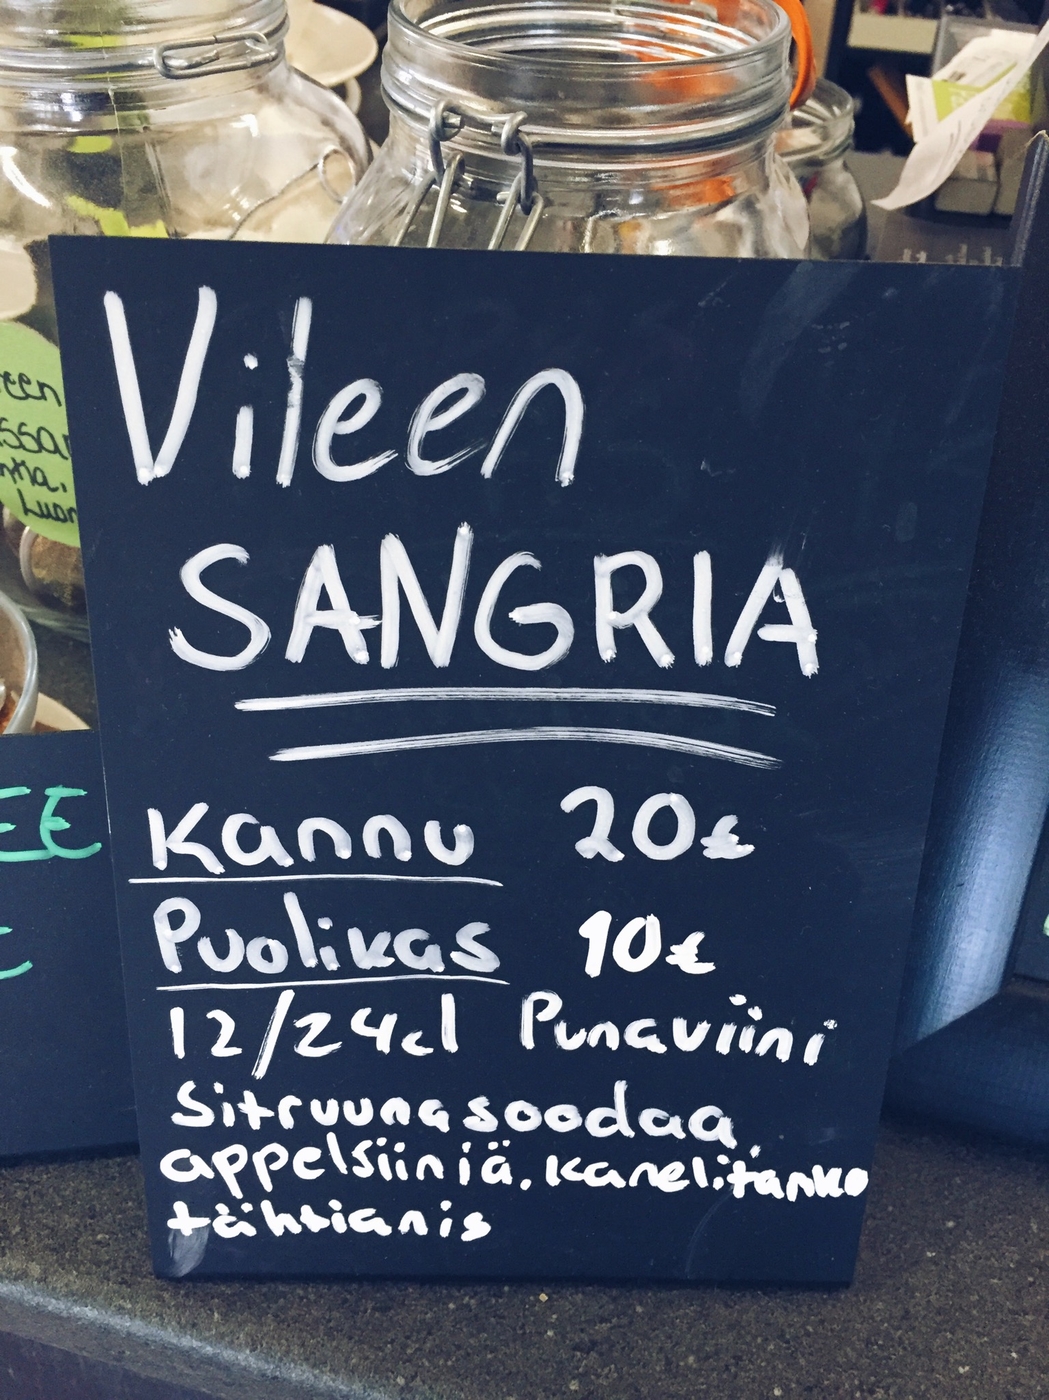 Vileen
SANGRIA
Kannu 20€
Puolikas 10€
12/24cl Punaviini
Sitruunasoodaa,
appelsiiniä, kanelitanko
tähtianis